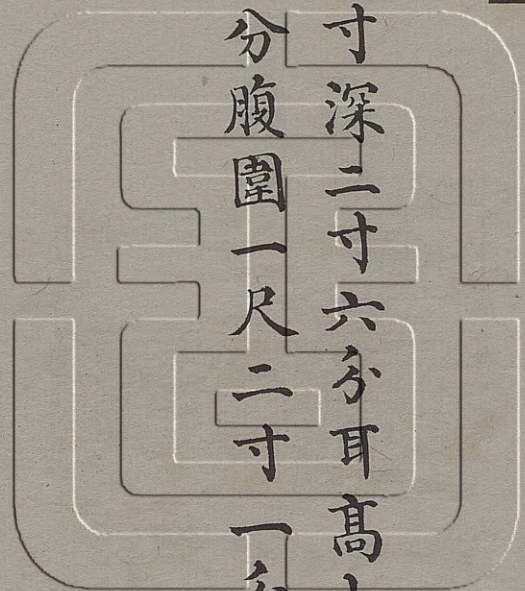 寸深二寸六分耳髙
分腹圍一尺二寸一